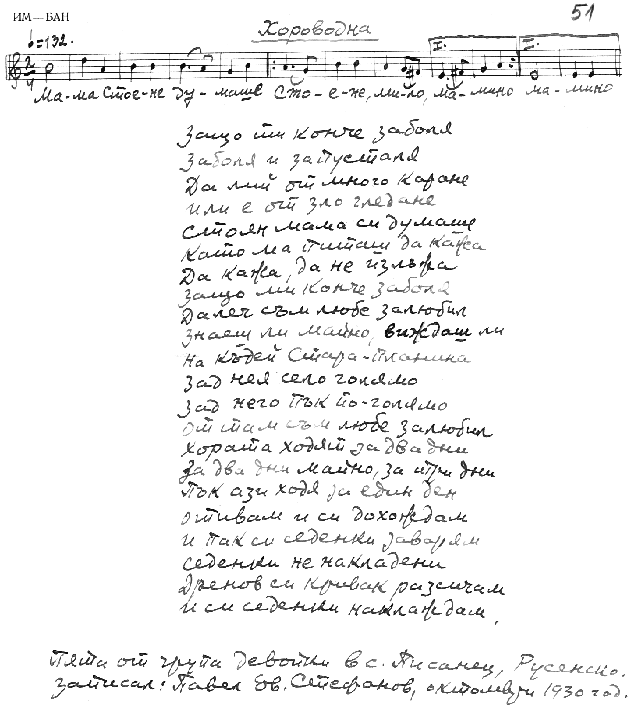 ИМ—БАН
51
Хороводна
♩=132.
I. II.
Ма-ма Стое-не ду-маше Сто-е-не, ми-ло, ма-мино ма-мино
Защо ти конче заболя
Заболя и запусталя
Да лий от много каране
или е от зло гледане
Стоян мама си думаше
Като ма питаш да кажа
Да кажа, да не излъжа
Защо ми конче заболя
Далеч съм любе залюбил
знаеш ли майно, виждаш ли
на къдей Стара-планина
зад нея село голямо
зад него пък по-голямо
от там съм любе залюбил
хората ходят за два дни
за два дни майно, за три дни
пък ази ходя за един ден
отивам и си дохождам
и пак си седенки заварям
седенки не накладени
Дренов си кривак разсичам
и си седенки накладждам.
Пята от група девойки в с. Писанец, Русенско.
записал: Павел Ев. Стефанов, октомври 1930 год.